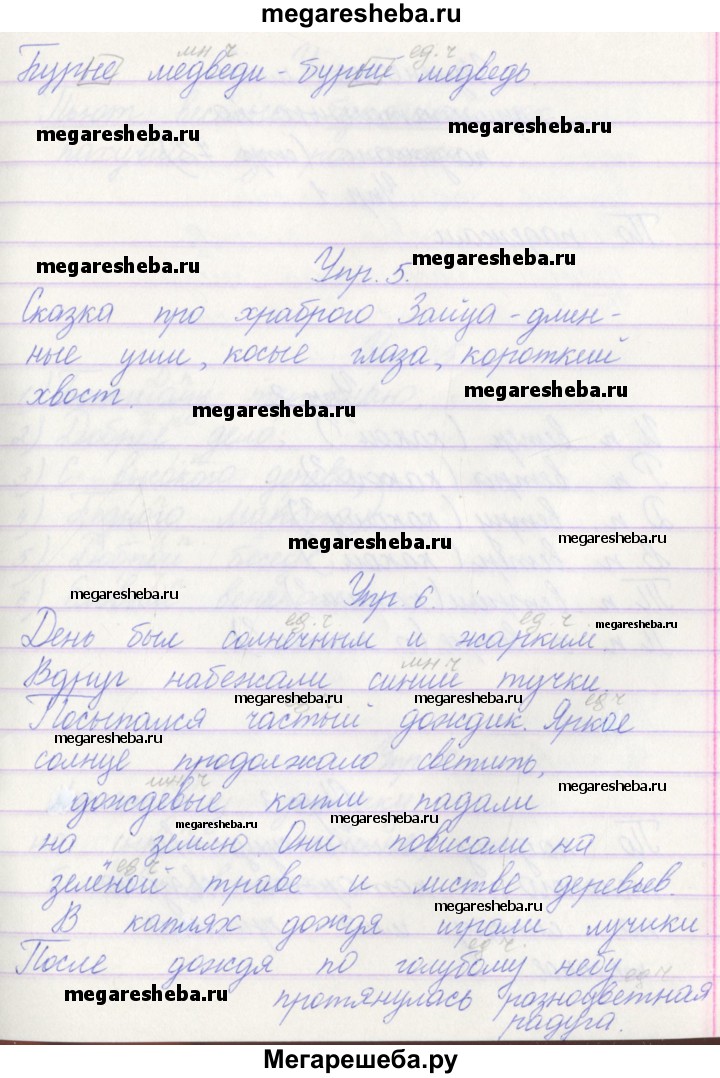 megaresheba.ru
мн.ч ед.ч
Бурые медведи - бурый медведь.
megaresheba.ru
megaresheba.ru
megaresheba.ru
megaresheba.ru
Упр. 5.
Сказка про храброго Зайца - длин-
ные уши, косые глаза, короткий
megaresheba.ru
хвост.
megaresheba.ru
megaresheba.ru
megaresheba.ru
megaresheba.ru
Упр. 6.
ед.ч ед.ч
megaresheba.ru
День был солнечным и жарким.
мн.ч
Вдруг набежали синие тучки.
megaresheba.ru
megaresheba.ru
ед.ч
Посыпался частый дождик. Яркое
megaresheba.ru
солнце продолжало светить,
мн.ч
megaresheba.ru
дождевые капли падали
megaresheba.ru
megaresheba.ru
на землю. Они повисали на
ед.ч
зелёной траве и листве деревьев.
megaresheba.ru
В каплях дождя играли лучики.
ед.ч.
После дождя по голубому небу
ед.ч
megaresheba.ru
протянулась разноцветная
радуга.
Мегарешеба.ру